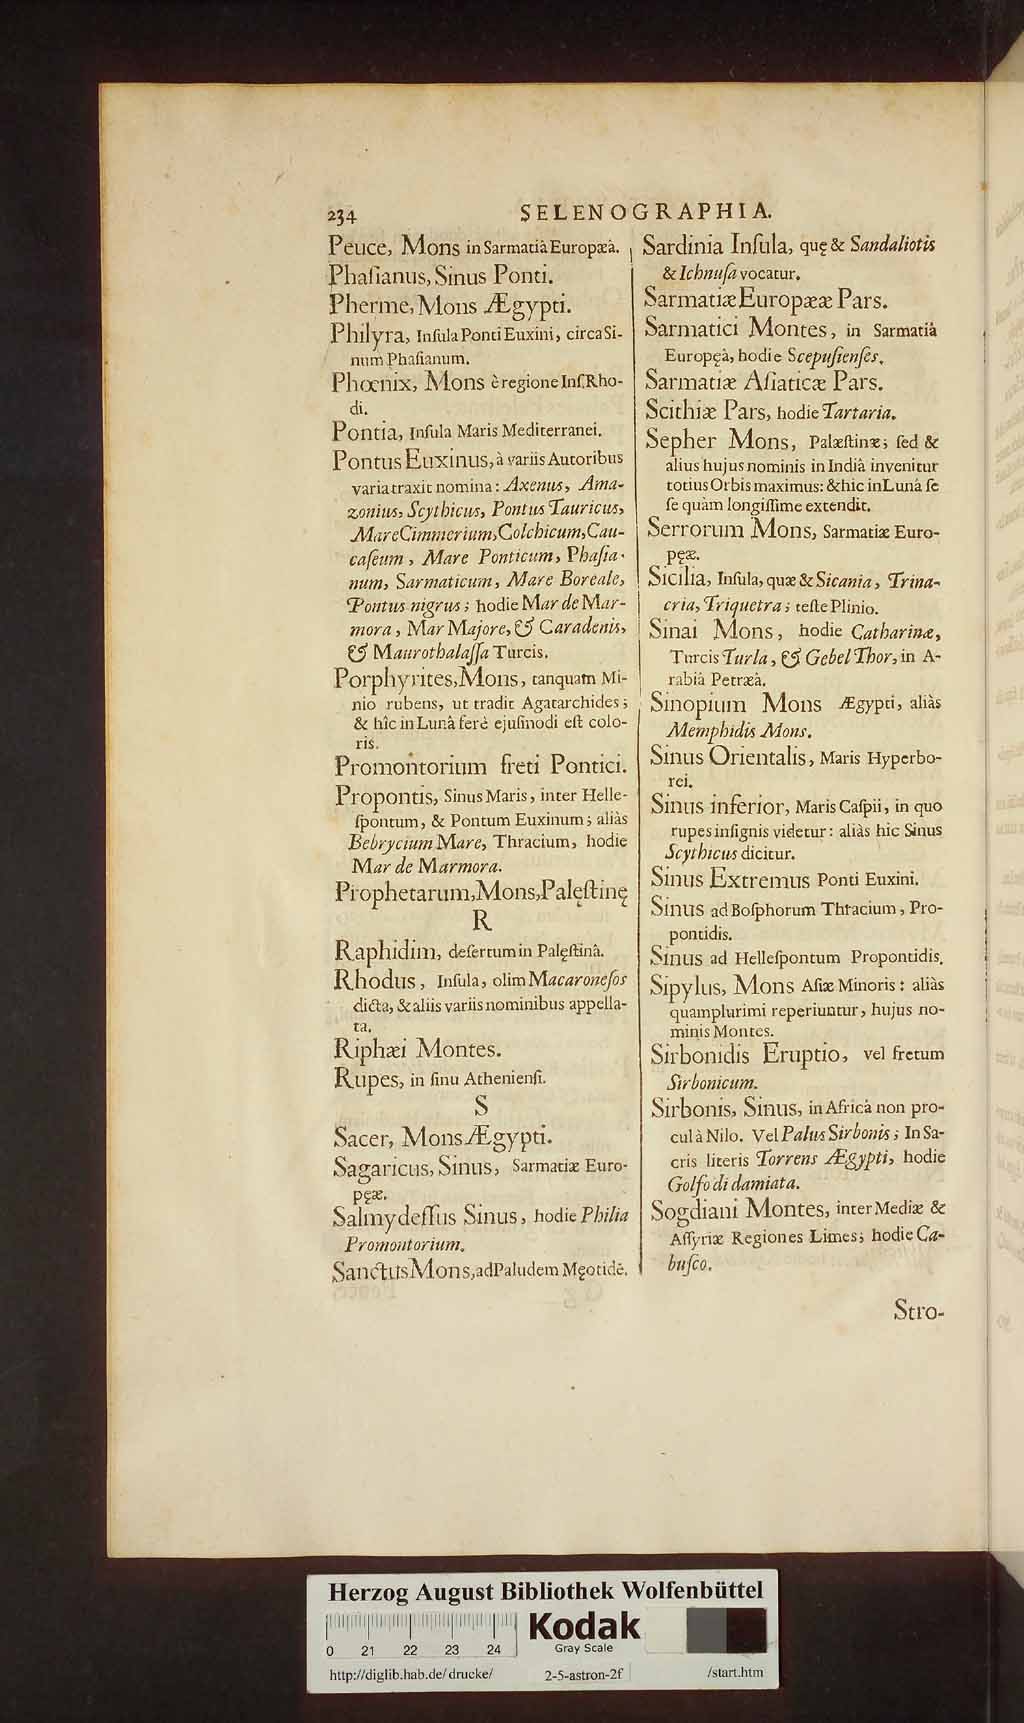 234 SELENOGRAPHIA.
Peuce, Mons in Sarmatiâ Europæâ.
Phaſianus, Sinus Ponti.
Pherme, Mons Ægypti.
Philyra, Inſula Ponti Euxini, circa Si-
num Phaſianum.
Phœnix, Mons è regione Inſ. Rho-
di.
Pontia, Inſula Maris Mediterranei.
Pontus Euxinus, à variis Autoribus
varia traxit nomina: Axenus, Ama-
zonius, Scythicus, Pontus Tauricus,
Mare Cimmerium, Colchicum, Cau-
caſeum, Mare Ponticum, Phaſia-
num, Sarmaticum, Mare Boreale,
Pontus nigrus; hodie Mar de Mar-
mora, Mar Majore, & Caradenis,
& Maurothalaſſa Turcis.
Porphyrites, Mons, tanquam Mi-
nio rubens, ut tradit Agatarchides;
& hîc in Lunâ ferè ejuſmodi eſt colo-
ris.
Promontorium freti Pontici.
Propontis, Sinus Maris, inter Helle-
ſpontum, & Pontum Euxinum; aliàs
Bebrycium Mare, Thracium, hodie
Mar de Marmora.
Prophetarum, Mons, Palęſtinę
R
Raphidim, deſertum in Palęſtinâ.
Rhodus, Inſula, olim Macaroneſos
dicta, & aliis variis nominibus appella-
ta.
Riphæi Montes.
Rupes, in ſinu Athenienſi.
S
Sacer, Mons Ægypti.
Sagaricus, Sinus, Sarmatiæ Euro-
pęæ.
Salmydeſſus Sinus, hodie Philia
Promontorium.
Sanctus Mons, ad Paludem Męotidē.
Sardinia Inſula, quę & Sandaliotis
& Ichnuſa vocatur.
Sarmatiæ Europææ Pars.
Sarmatici Montes, in Sarmatiâ
Europęâ, hodie Scepuſienſes.
Sarmatiæ Aſiaticæ Pars.
Scithiæ Pars, hodie Tartaria.
Sepher Mons, Palæſtinæ; ſed &
alius hujus nominis in Indiâ invenitur
totius Orbis maximus: & hic in Lunâ ſe
ſe quàm longiſſime extendit.
Serrorum Mons, Sarmatiæ Euro-
pęæ.
Sicilia, Inſula, quæ & Sicania, Trina-
cria, Triquetra; teſte Plinio.
Sinai Mons, hodie Catharinæ,
Turcis Turla, & Gebel Thor, in A-
rabiâ Petræâ.
Sinopium Mons Ægypti, aliàs
Memphidis Mons.
Sinus Orientalis, Maris Hyperbo-
rei.
Sinus inferior, Maris Caſpii, in quo
rupes inſignis videtur: aliàs hic Sinus
Scythicus dicitur.
Sinus Extremus Ponti Euxini.
Sinus ad Boſphorum Thracium, Pro-
pontidis.
Sinus ad Helleſpontum Propontidis.
Sipylus, Mons Aſiæ Minoris: aliàs
quamplurimi reperiuntur, hujus no-
minis Montes.
Sirbonidis Eruptio, vel fretum
Sirbonicum.
Sirbonis, Sinus, in Africâ non pro-
cul à Nilo. Vel Palus Sirbonis; In Sa-
cris literis Torrens Ægypti, hodie
Golfo di damiata.
Sogdiani Montes, inter Mediæ &
Aſſyriæ Regiones Limes; hodie Ca-
buſco.
Stro-
Herzog August Bibliothek Wolfenbüttel
Kodak
Gray Scale
0 21 22 23 24
http://diglib.hab.de/drucke/ 2-5-astron-2f /start.htm